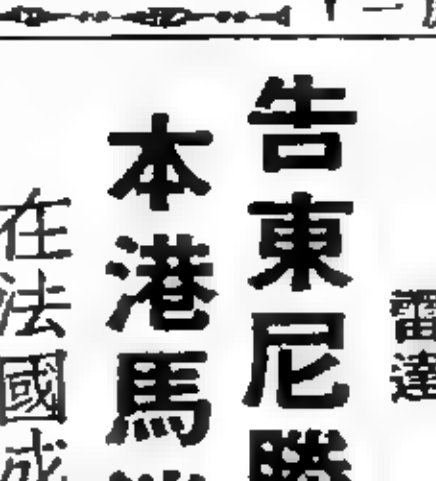 雷達
告東尼勝
本港馬
在法國成